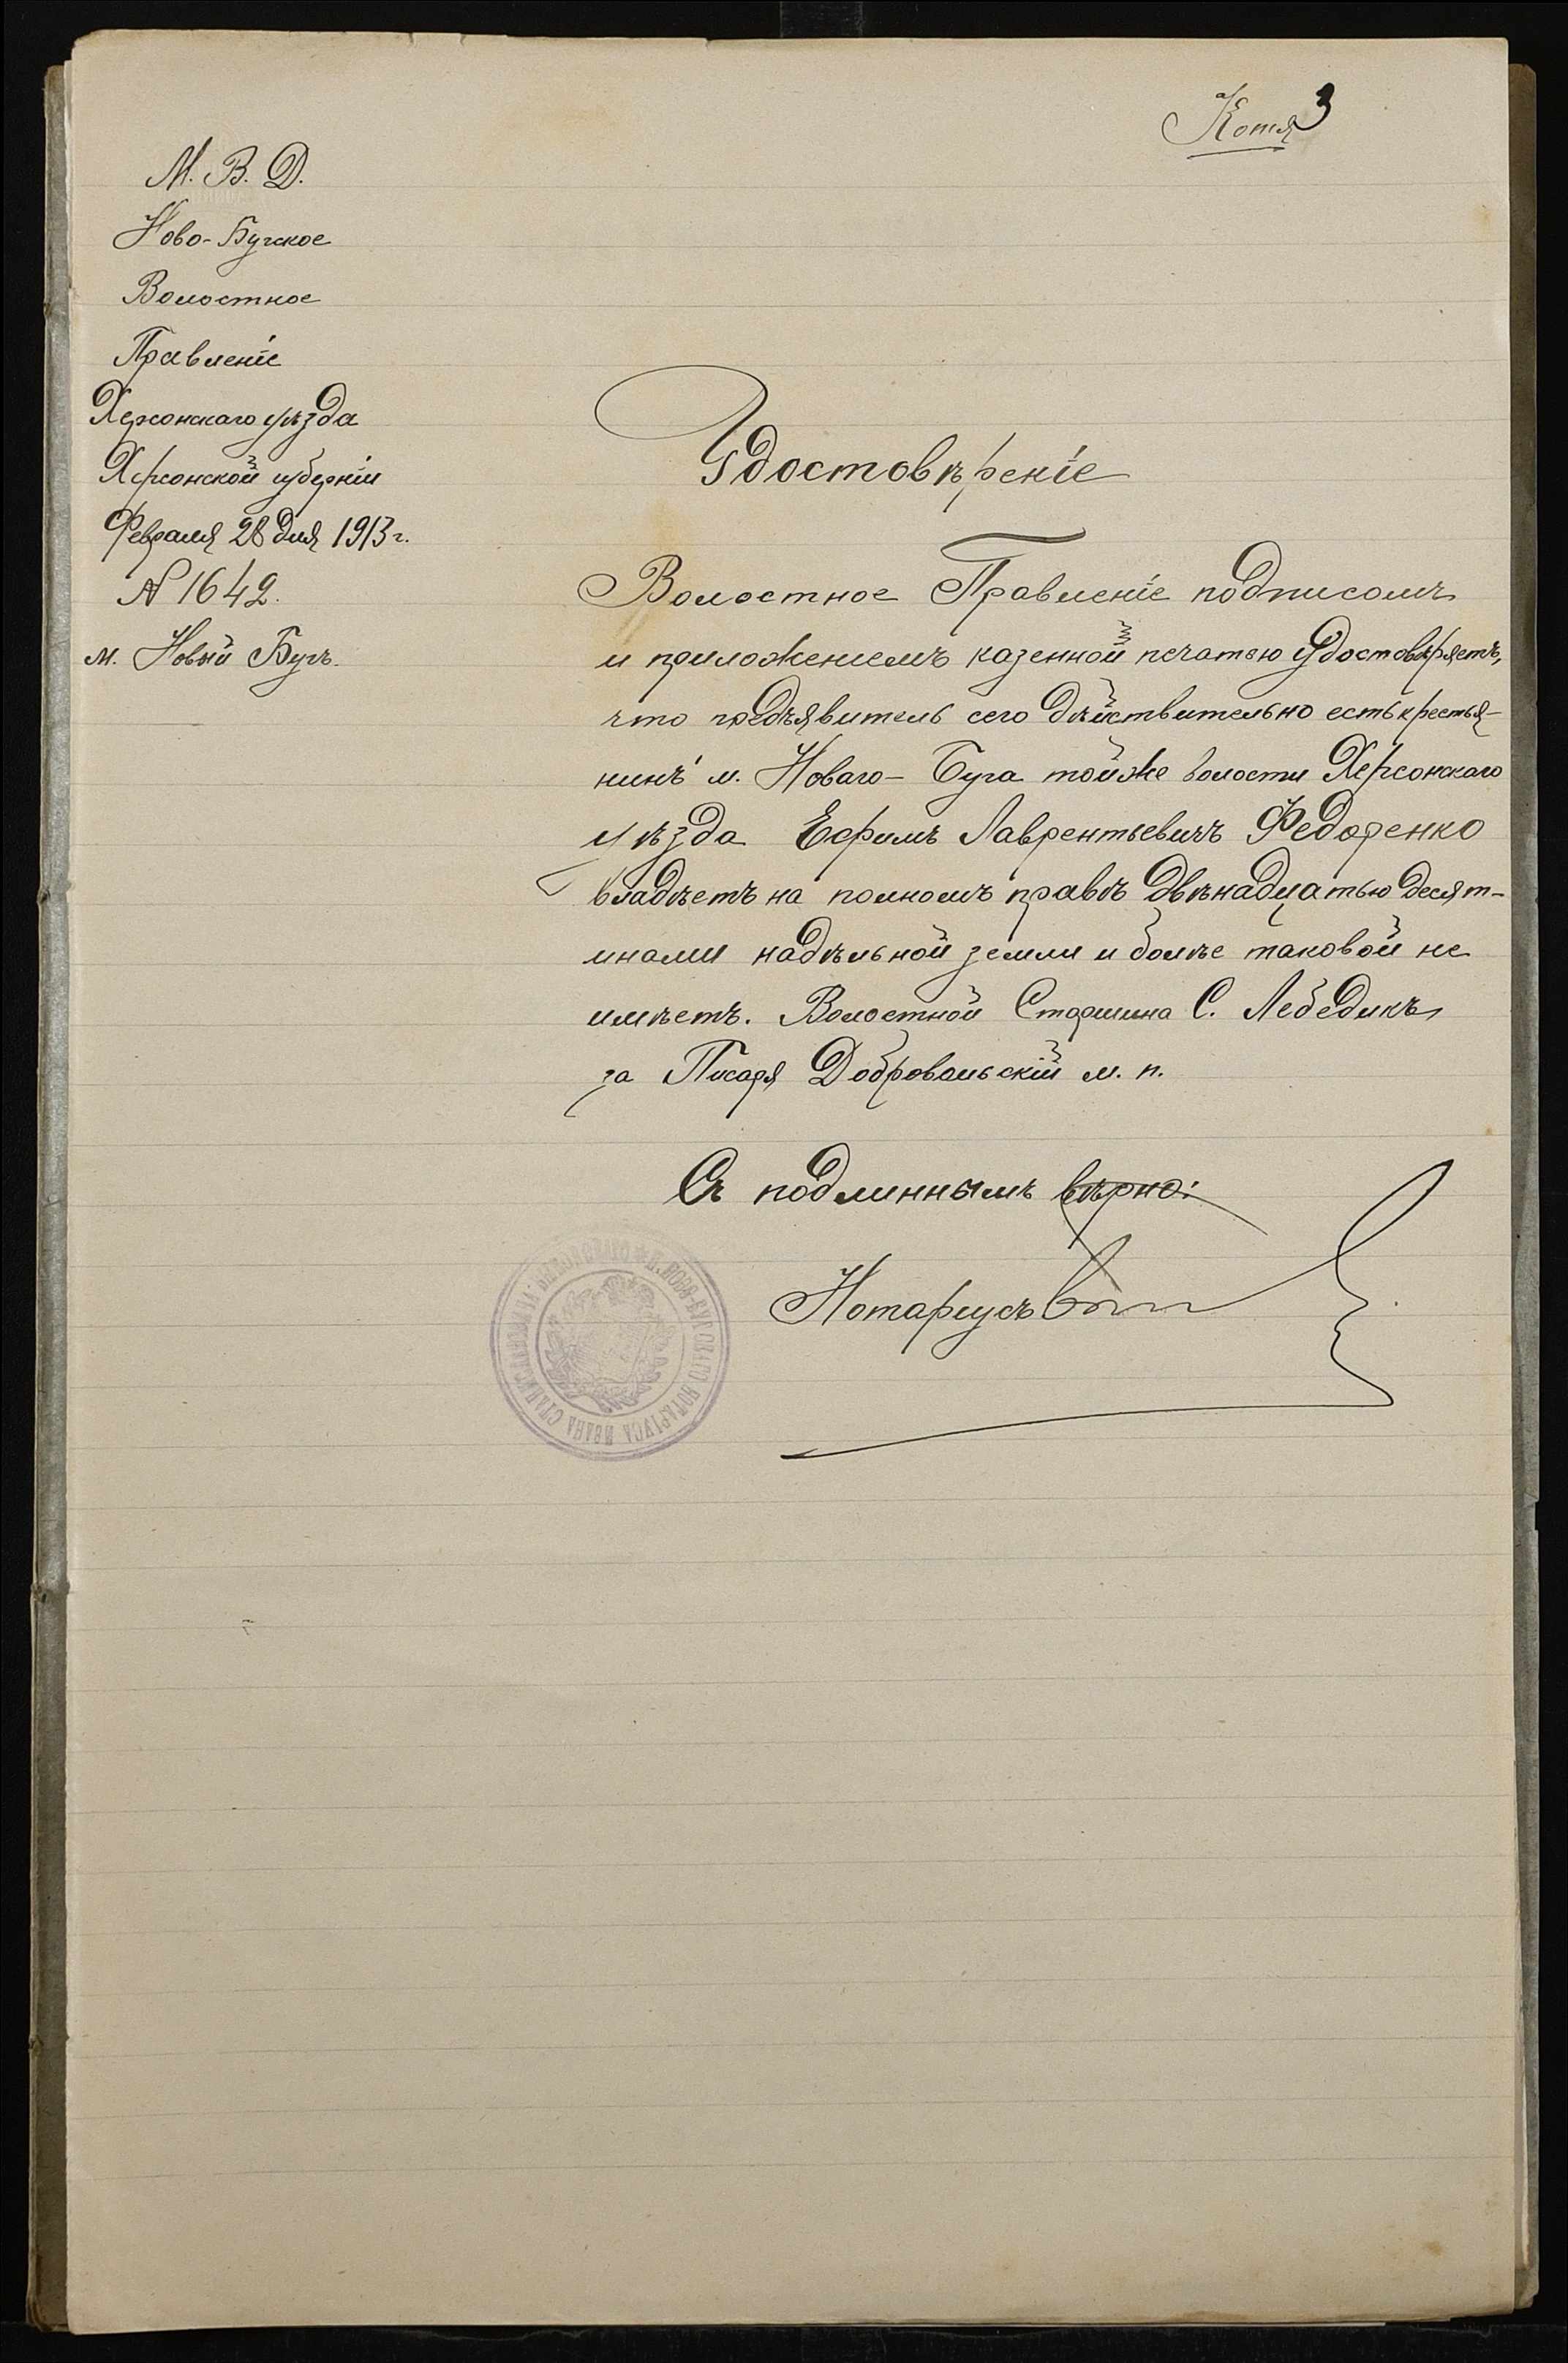 Копія
3
М. В. Д.
Ново-Бугское
Волостное
Правленіе
Херсонскаго уѣзда
Херсонской губерніи
Февраля 28 дня 1913 г.
№ 1642.
м. Новый Бугъ.
Удостовѣреніе
Волостное Правленіе подписомъ
и приложеніемъ казенной печатью удостовѣряетъ,
что предъявитель сего дѣйствительно есть крестья-
нинъ м. Новаго-Буга той же волости Херсонскаго
уѣзда Ефимъ Лаврентьевичъ Федоренко
владѣетъ на полномъ правѣ двѣнадцатью десят-
инами надѣльной земли и болѣе таковой не
имѣетъ. Волостной Старшина С. Лебедикъ
за Писаря Добровольскій м. п.
Съ подлиннымъ вѣрно:
Нотаріусъ
НОТАРІУСА ИВАНА